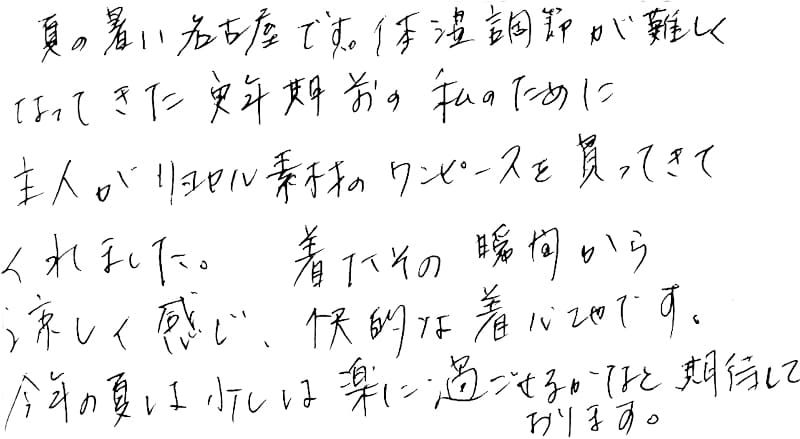 夏の暑い名古屋です。体温調節が難しく
なってきた更年期前の私のために
主人がリヨセル素材のワンピースを買ってきて
くれました。 着たその瞬間から
涼しく感じ、快的な着心地です。
今年の夏は少しは楽に過ごせるかなと期待して
おります。